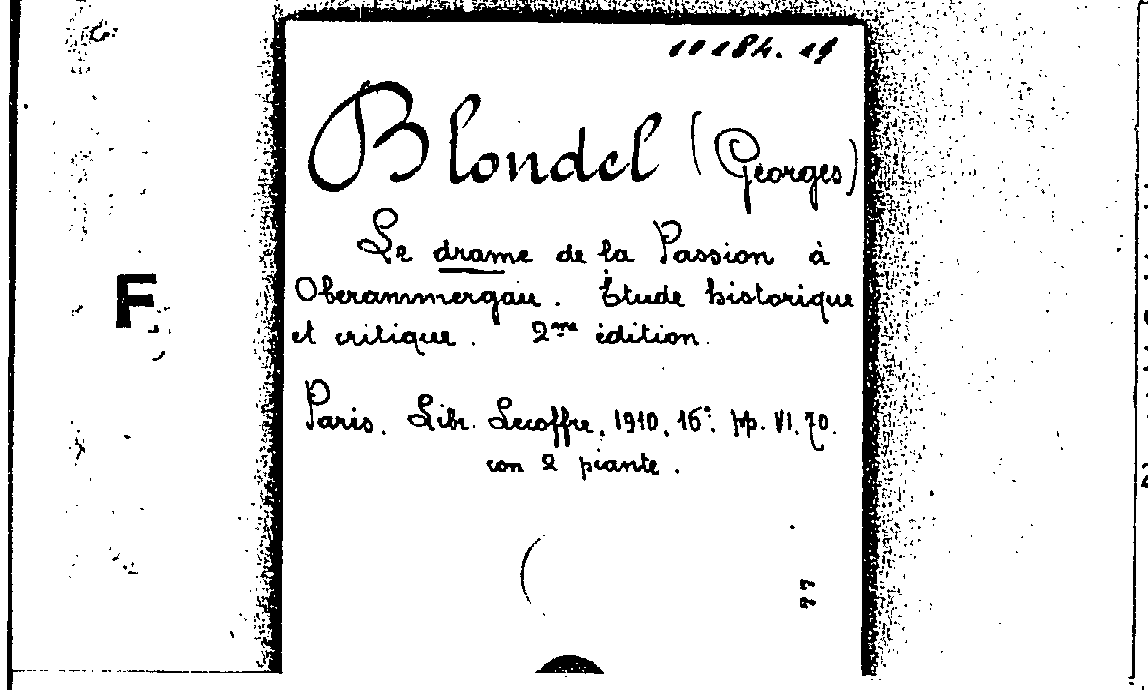 10184.19
Blondel (Georges)
Le drame de la Passion à
Oberammergau. Étude historique
et critique. 2me édition.
Paris. Libr. Lecoffre, 1910, 16°. pp. VI. 70.
con 2 piante.
F
77